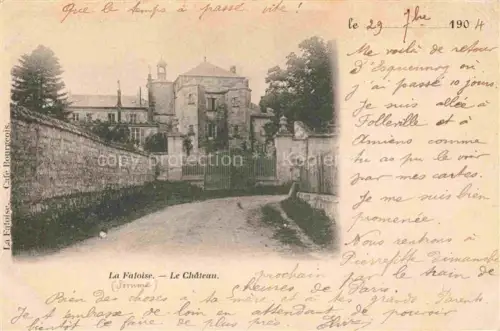 Que le temps a passé vite !
le 29 7bre 1904
Me voilà de retour
d'Esquennoy où
j'ai passé 10 jours.
Je suis allée à
Folleville et à
Amiens comme
tu as pu le voir
par mes cartes.
Je me suis bien
promenée.
Nous rentrons à
Pierrefitte Dimanche
prochain par le train de
heures de Paris.
La Faloise. — Café Bourgeois.
La Faloise. — Le Château.
(Somme)
Bien des choses à ta mère et à tes grands Parents.
Je t'embrasse de loin en attendant de pouvoir
bientôt le faire de plus près
copyright-cpa